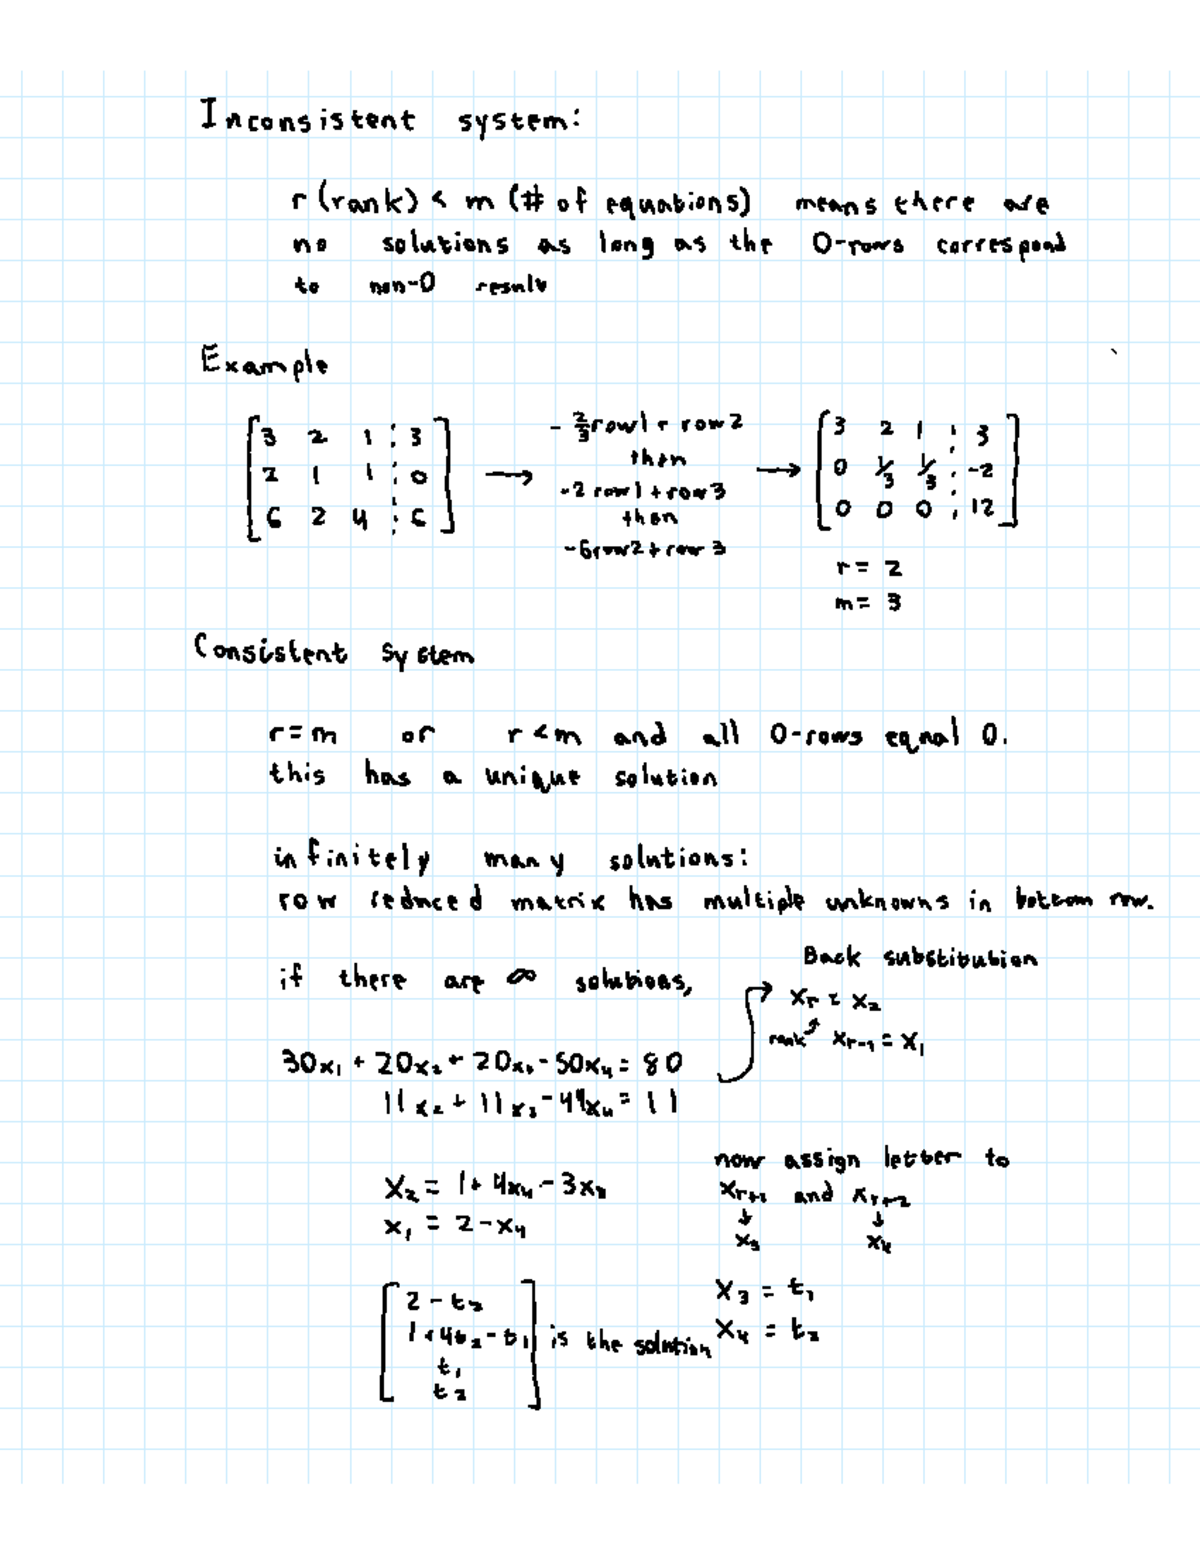 Inconsistent system:
r (rank) < m (# of equations) means there are
no solutions as long as the 0-rows correspond
to non-0 result
Example
[3 2 1 ¦ 3
2 1 1 ¦ 0
6 2 4 ¦ 6]
→
- 2/3 row1 + row2
then
-2 row1 + row3
then
-6row2 + row 3
→
[3 2 1 ¦ 3
0 1/3 1/3 ¦ -2
0 0 0 ¦ 12]
r = 2
m = 3
Consistent System
r = m or r < m and all 0-rows equal 0.
this has a unique solution
infinitely many solutions:
row reduced matrix has multiple unknowns in bottom row.
if there are ∞ solutions,
30x₁ + 20x₂ + 20x₃ - 50x₄ = 80
11x₂ + 11x₃ - 44x₄ = 11
Back substitution
xᵣ = x₂
rank xᵣ₋₁ = x₁
x₂ = 1 + 4x₄ - 3x₃
x₁ = 2 - x₄
now assign letter to
xᵣ₊₁ and xᵣ₊₂
↓ ↓
x₃ x₄
x₃ = t₁
x₄ = t₂
[2 - t₂
1 + 4t₂ - t₁
t₁
t₂] is the solution